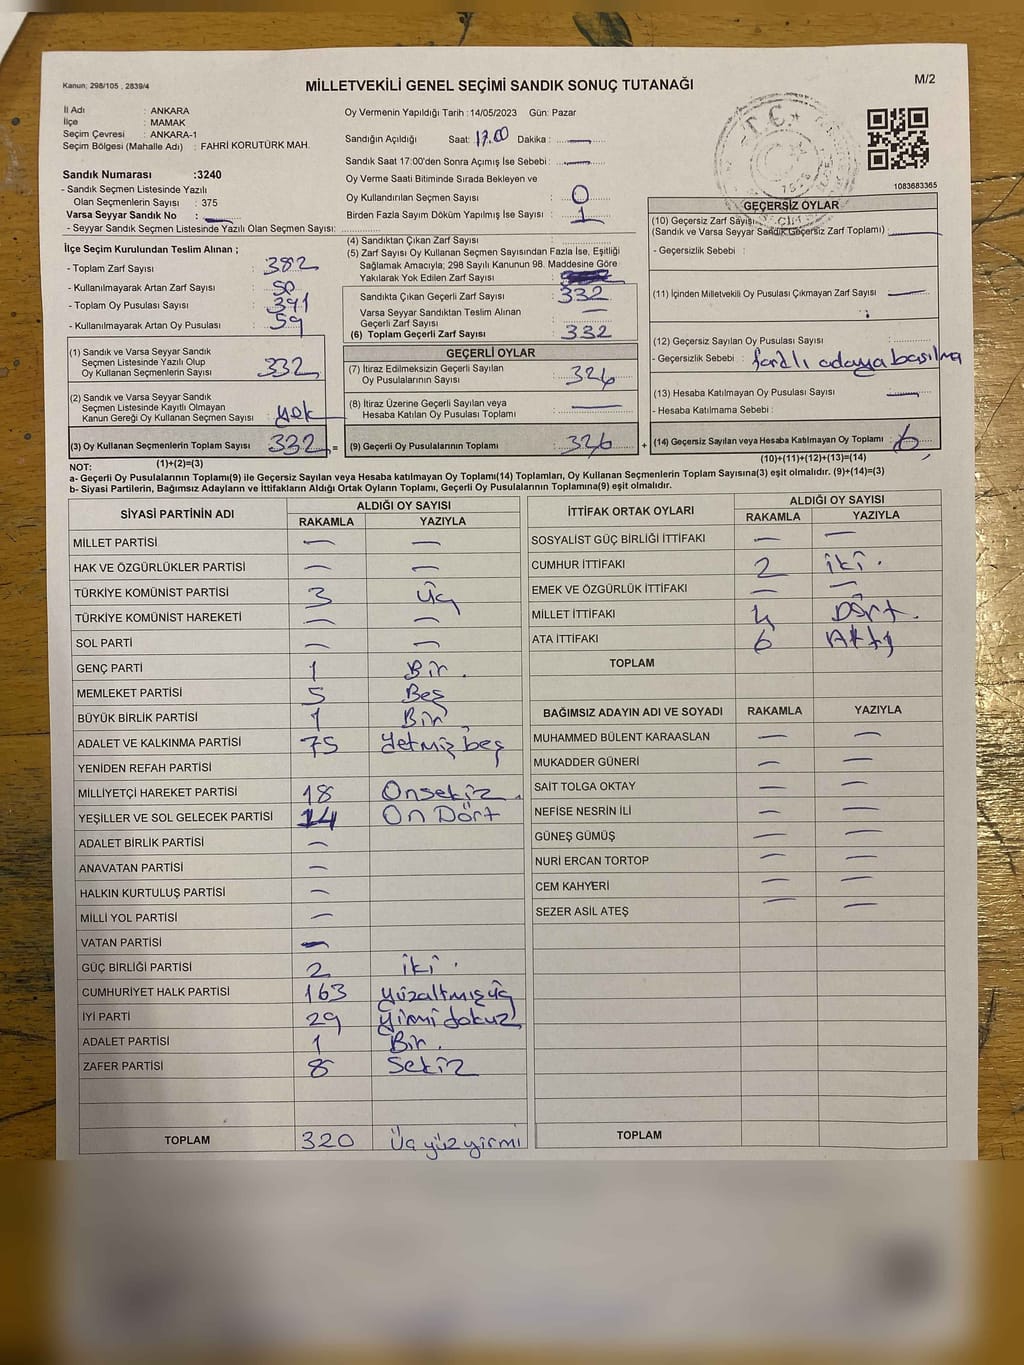 Kanun; 298/105 , 2839/4
MİLLETVEKİLİ GENEL SEÇİMİ SANDIK SONUÇ TUTANAĞI
M/2
İl Adı : ANKARA
İlçe : MAMAK
Seçim Çevresi : ANKARA-1
Seçim Bölgesi (Mahalle Adı) : FAHRİ KORUTÜRK MAH.
Sandık Numarası :3240
- Sandık Seçmen Listesinde Yazılı
Olan Seçmenlerin Sayısı : 375
Varsa Seyyar Sandık No : —
- Seyyar Sandık Seçmen Listesinde Yazılı Olan Seçmen Sayısı:
Oy Vermenin Yapıldığı Tarih :14/05/2023 Gün: Pazar
Sandığın Açıldığı Saat: 17.00 Dakika : —
Sandık Saat 17:00'den Sonra Açımış İse Sebebi : —
Oy Verme Saati Bitiminde Sırada Bekleyen ve
Oy Kullandırılan Seçmen Sayısı : 0
Birden Fazla Sayım Döküm Yapılmış İse Sayısı : 1
T.C.
1083683365
İlçe Seçim Kurulundan Teslim Alınan ;
- Toplam Zarf Sayısı : 382
- Kullanılmayarak Artan Zarf Sayısı : 50
- Toplam Oy Pusulası Sayısı : 391
- Kullanılmayarak Artan Oy Pusulası : 59
(1) Sandık ve Varsa Seyyar Sandık
Seçmen Listesinde Yazılı Olup
Oy Kullanan Seçmenlerin Sayısı : 332
(2) Sandık ve Varsa Seyyar Sandık
Seçmen Listesinde Kayıtlı Olmayan
Kanun Gereği Oy Kullanan Seçmen Sayısı : yok
(3) Oy Kullanan Seçmenlerin Toplam Sayısı : 332 =
(4) Sandıktan Çıkan Zarf Sayısı :
(5) Zarf Sayısı Oy Kullanan Seçmen Sayısından Fazla İse, Eşitliği
Sağlamak Amacıyla; 298 Sayılı Kanunun 98. Maddesine Göre
Yakılarak Yok Edilen Zarf Sayısı :
Sandıkta Çıkan Geçerli Zarf Sayısı : 332
Varsa Seyyar Sandıktan Teslim Alınan
Geçerli Zarf Sayısı : —
(6) Toplam Geçerli Zarf Sayısı : 332
GEÇERLİ OYLAR
(7) İtiraz Edilmeksizin Geçerli Sayılan
Oy Pusulalarının Sayısı : 326
(8) İtiraz Üzerine Geçerli Sayılan veya
Hesaba Katılan Oy Pusulası Toplamı : —
(9) Geçerli Oy Pusulalarının Toplamı : 326 +
GEÇERSİZ OYLAR
(10) Geçersiz Zarf Sayısı
(Sandık ve Varsa Seyyar Sandık Geçersiz Zarf Toplamı) : —
- Geçersizlik Sebebi :
(11) İçinden Milletvekili Oy Pusulası Çıkmayan Zarf Sayısı : —
(12) Geçersiz Sayılan Oy Pusulası Sayısı :
- Geçersizlik Sebebi : farklı adaya basılma
(13) Hesaba Katılmayan Oy Pusulası Sayısı : —
- Hesaba Katılmama Sebebi :
(14) Geçersiz Sayılan veya Hesaba Katılmayan Oy Toplamı : 6
NOT: (1)+(2)=(3)
(10)+(11)+(12)+(13)=(14)
a- Geçerli Oy Pusulalarının Toplamı(9) ile Geçersiz Sayılan veya Hesaba Katılmayan Oy Toplamı(14) Toplamları, Oy Kullanan Seçmenlerin Toplam Sayısına(3) eşit olmalıdır. (9)+(14)=(3)
b- Siyasi Partilerin, Bağımsız Adayların ve İttifakların Aldığı Ortak Oyların Toplamı, Geçerli Oy Pusulalarının Toplamına(9) eşit olmalıdır.
SİYASİ PARTİNİN ADI ALDIĞI OY SAYISI
RAKAMLA YAZIYLA
MİLLET PARTİSİ — —
HAK VE ÖZGÜRLÜKLER PARTİSİ — —
TÜRKİYE KOMÜNİST PARTİSİ 3 Üç
TÜRKİYE KOMÜNİST HAREKETİ — —
SOL PARTİ — —
GENÇ PARTİ 1 Bir.
MEMLEKET PARTİSİ 5 Beş
BÜYÜK BİRLİK PARTİSİ 1 Bir
ADALET VE KALKINMA PARTİSİ 75 Yetmiş beş
YENİDEN REFAH PARTİSİ
MİLLİYETÇİ HAREKET PARTİSİ 18 Onsekiz.
YEŞİLLER VE SOL GELECEK PARTİSİ 14 On Dört
ADALET BİRLİK PARTİSİ —
ANAVATAN PARTİSİ —
HALKIN KURTULUŞ PARTİSİ —
MİLLİ YOL PARTİSİ —
VATAN PARTİSİ —
GÜÇ BİRLİĞİ PARTİSİ 2 iki.
CUMHURİYET HALK PARTİSİ 163 yüzaltmışüç
İYİ PARTİ 29 yirmidokuz
ADALET PARTİSİ 1 Bir.
ZAFER PARTİSİ 8 Sekiz
TOPLAM 320 Üçyüzyirmi
İTTİFAK ORTAK OYLARI ALDIĞI OY SAYISI
RAKAMLA YAZIYLA
SOSYALİST GÜÇ BİRLİĞİ İTTİFAKI — —
CUMHUR İTTİFAKI 2 iki.
EMEK VE ÖZGÜRLÜK İTTİFAKI — —
MİLLET İTTİFAKI 4 Dört.
ATA İTTİFAKI 6 Altı
TOPLAM
BAĞIMSIZ ADAYIN ADI VE SOYADI RAKAMLA YAZIYLA
MUHAMMED BÜLENT KARAASLAN — —
MUKADDER GÜNERİ — —
SAİT TOLGA OKTAY — —
NEFİSE NESRİN İLİ — —
GÜNEŞ GÜMÜŞ — —
NURİ ERCAN TORTOP — —
CEM KAHYERİ — —
SEZER ASİL ATEŞ — —
TOPLAM